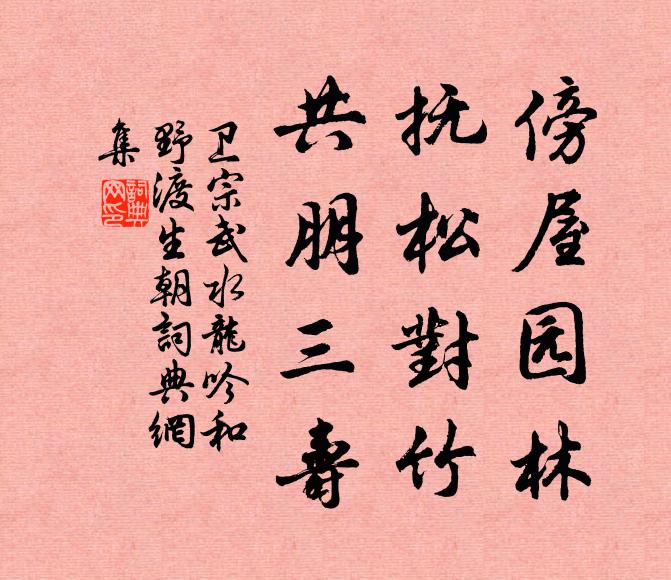 傍屋园林
抚松對竹
共朋三壽
卫宗武水龍吟和
野渡生朝詞典網
集
詞典网印